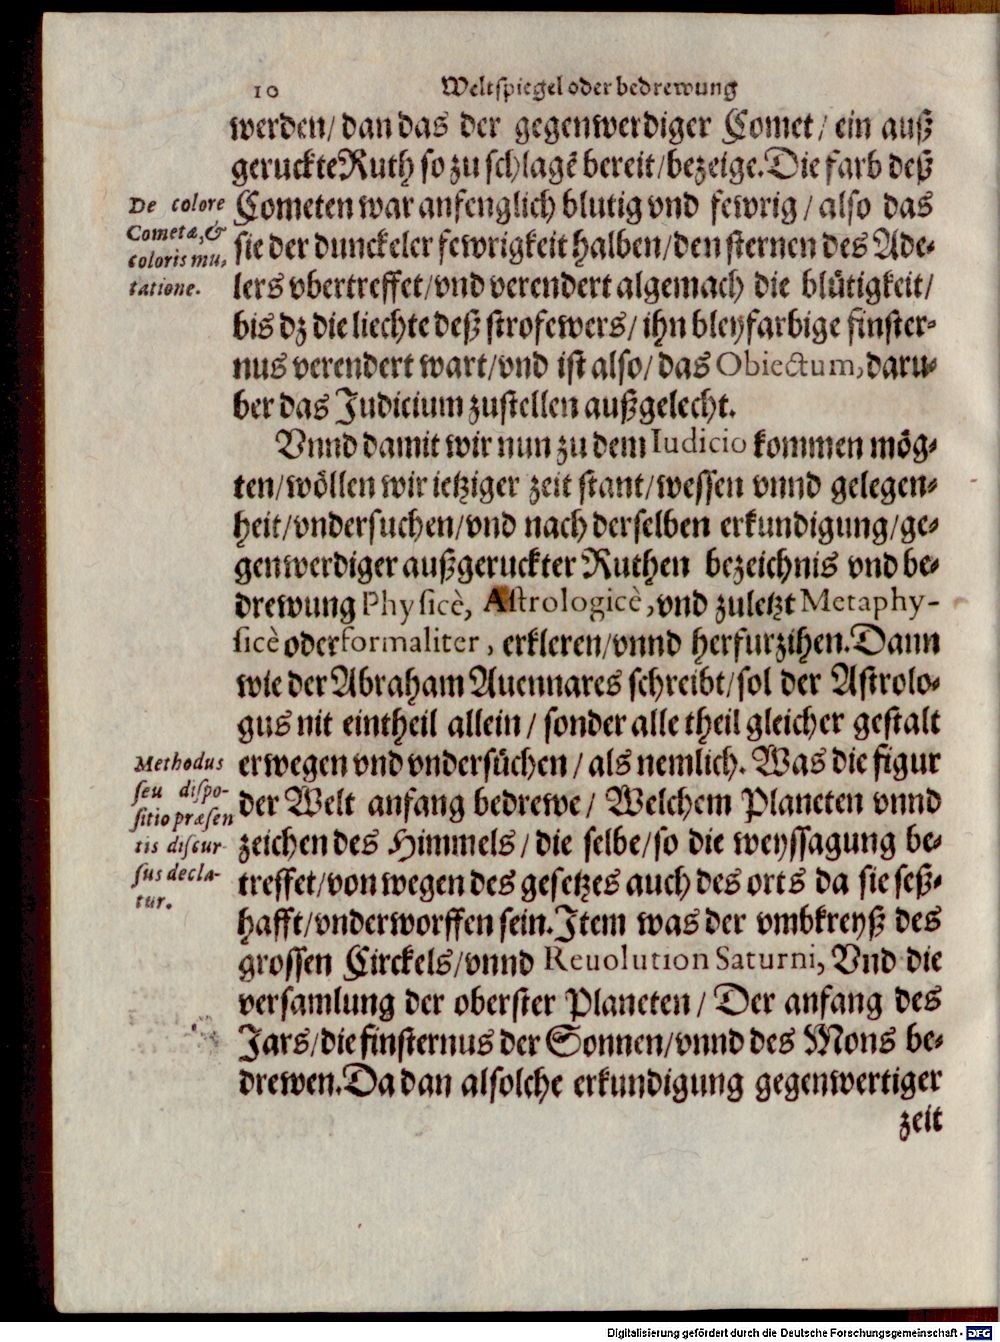 10 Weltspiegel oder bedrewung
werden/ dan das der gegenwerdiger Comet/ ein auß
geruckte Ruth so zu schlagē bereit/ bezeige. Die farb deß
De colore
Cometæ, &
coloris mu,
tatione.
Cometen war anfenglich blutig vnd fewrig/ also das
sie der dunckeler fewrigkeit halben/ den sternen des Ade-
lers vbertreffet/ vnd verendert algemach die blůtigkeit/
bis dz die liechte deß strofewers/ ihn bleyfarbige finster-
nus verendert wart/ vnd ist also/ das Obiectum, daru-
ber das Judicium zustellen außgelecht.
Vnnd damit wir nun zu dem Iudicio kommen mög-
ten/ wöllen wir ietziger zeit stant/ wessen vnnd gelegen-
heit/ vndersuchen/ vnd nach derselben erkundigung/ ge-
genwerdiger außgeruckter Ruthen bezeichnis vnd be-
drewung Physicè, Astrologicè, vnd zuletzt Metaphy-
sicè oder formaliter, erkleren/ vnnd herfurzihen. Dann
wie der Abraham Auennares schreibt/ sol der Astrolo-
gus nit eintheil allein/ sonder alle theil gleicher gestalt
Methodus
seu dispo-
sitio præsen
tis discur
sus decla-
tur.
erwegen vnd vndersůchen/ als nemlich. Was die figur
der Welt anfang bedrewe/ Welchem Planeten vnnd
zeichen des Himmels/ die selbe/ so die weyssagung be-
treffet/ von wegen des gesetzes auch des orts da sie seß-
hafft/ vnderworffen sein. Item was der vmbkreyß des
grossen Circkels/ vnnd Reuolution Saturni, Vnd die
versamlung der oberster Planeten/ Der anfang des
Jars/ die finsternus der Sonnen/ vnnd des Mons be-
drewen. Da dan alsolche erkundigung gegenwertiger
zeit
Digitalisierung gefördert durch die Deutsche Forschungsgemeinschaft - DFG